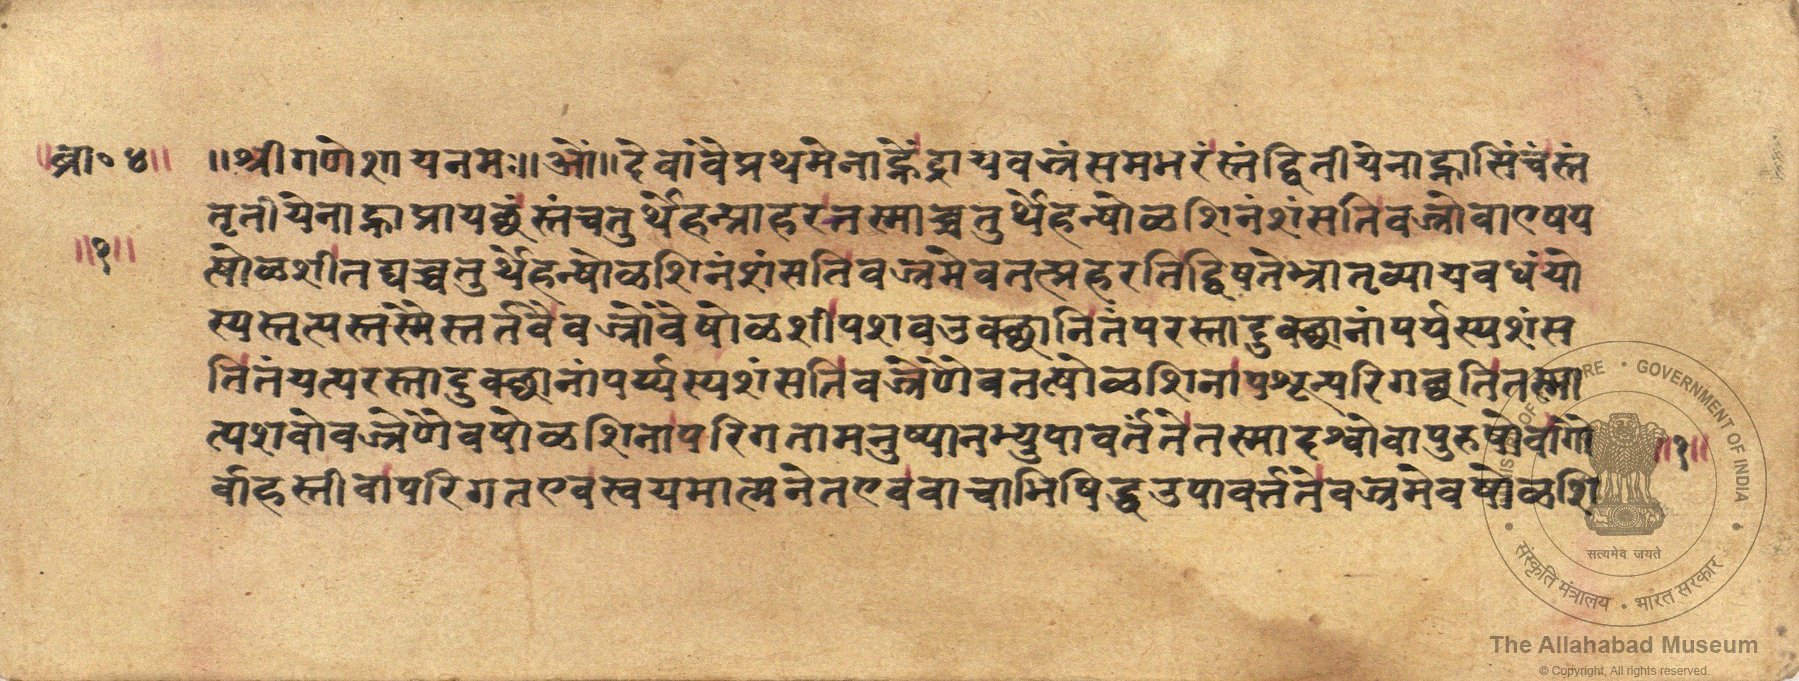 ॥ब्रा०४॥
॥श्रीगणेशायनमः॥ओं॥देवावैप्रथमेनाह्नेंद्रायवज्रंसमभरंस्तंद्वितीयेनाह्नासिंचंस्तं
तृतीयेनाह्नाप्रायछंस्तंचतुर्थेहन्प्राहरत्तस्माच्चतुर्थेहन्षोळशिनंशंसतिवज्रोवाएषय
॥१॥
त्षोळशीतद्यच्चतुर्थेहन्षोळशिनंशंसतिवज्रमेवतत्प्रहरतिद्विषतेभ्रातृव्यायवधंयो
स्यस्तृत्यस्तस्मैस्तर्तवैवज्रोवैषोळशीपशवउक्थानितंपरस्तादुक्थानांपर्यस्यशंस
तितंयत्परस्तादुक्थानांपर्य्यस्यशंसतिवज्रेणैवतत्षोळशिनापशून्परिगछतितस्मा
त्पशवोवज्रेणैवषोळशिनापरिगतामनुष्यानभ्युपावर्तंतेतस्मादश्वोवापुरुषोवागो
॥१॥
र्वाहस्तीवापरिगतएवस्वयमात्मनेतएववाचाभिषिद्धउपावर्त्ततेवज्रमेवषोळशि
MINISTRY OF CULTURE • GOVERNMENT OF INDIA
सत्यमेव जयते
संस्कृति मंत्रालय • भारत सरकार
The Allahabad Museum
© Copyright, All rights reserved.